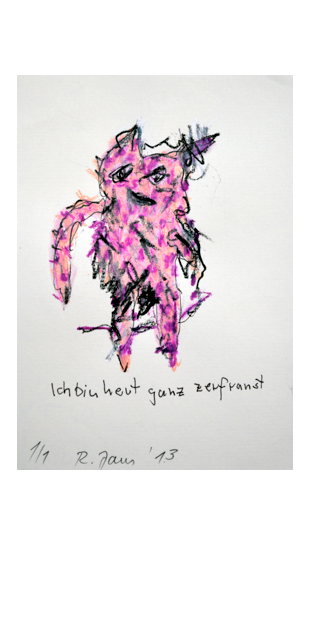 Ich bin heut ganz zerfranst
1/1 R. Jaus '13